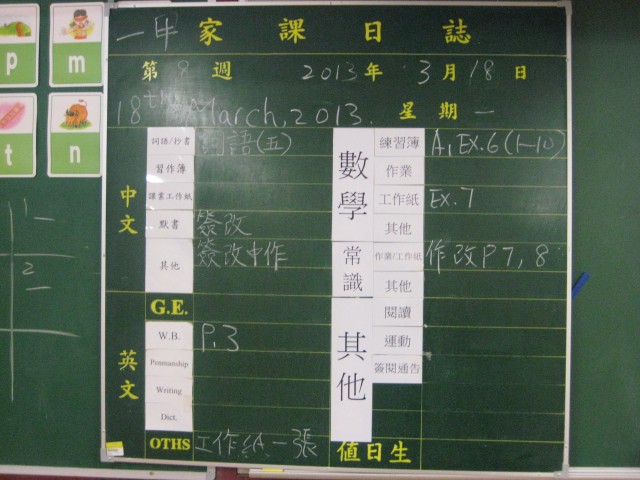 一甲家課日誌
第8週 2013年3月18日
18th March, 2013. 星期一
中文
詞語/抄書 詞語(五)
習作簿
課業工作紙
默書 簽改
其他 簽改中作
G.E.
英文
W.B. P.3
Penmanship
Writing
Dict.
OTHS 工作紙一張
數學
練習簿 A, EX.6 (1-10)
作業
工作紙 EX.7
其他
常識
作業/工作紙 作改P7, 8
其他
其他
閱讀
運動
簽閱通告
值日生
p
m
t
n
1
2